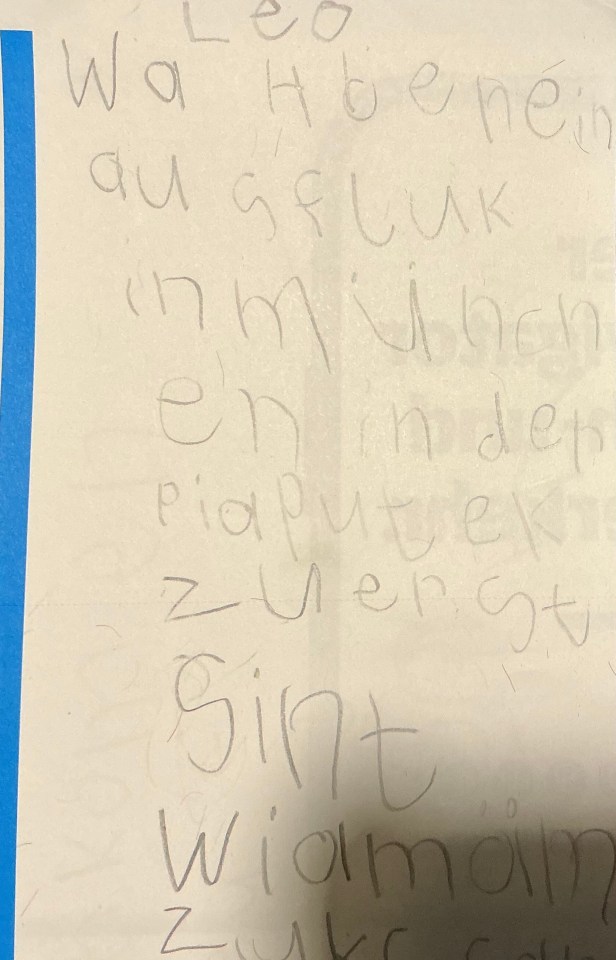 Leo
Wa Hbenein
ausfluk
in münch
en in der
Piaputek
zuerst
Sint
Wiamäin